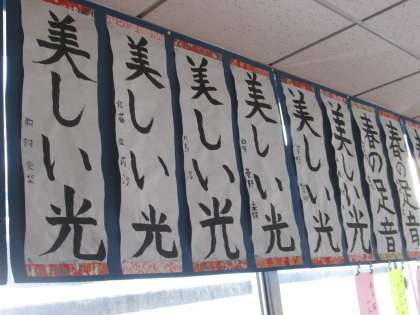 美しい光
美しい光
美しい光
美しい光
美しい光
美しい光
春の足音
春の足音